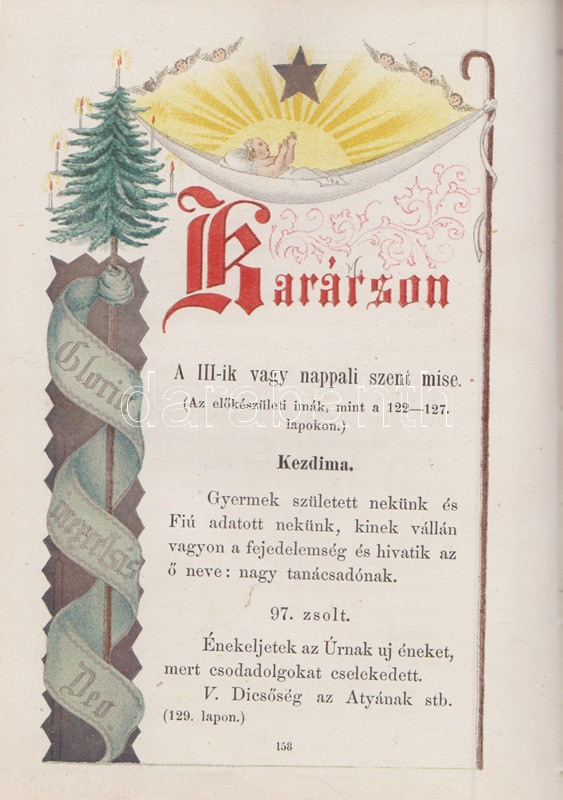 Karátson
A III-ik vagy nappali szent mise.
(Az előkészületi imák, mint a 122—127.
lapokon.)
Kezdima.
Gyermek született nekünk és
Fiú adatott nekünk, kinek vállán
vagyon a fejedelemség és hivatik az
ő neve: nagy tanácsadónak.
97. zsolt.
Énekeljetek az Úrnak uj éneket,
mert csodadolgokat cselekedett.
V. Dicsőség az Atyának stb.
(129. lapon.)
158
Gloria
in excelsis
Deo
darabanth